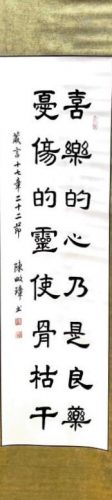 喜樂的心乃是良藥
憂傷的靈使骨枯干
箴言十七章二十二節
陳政璋書